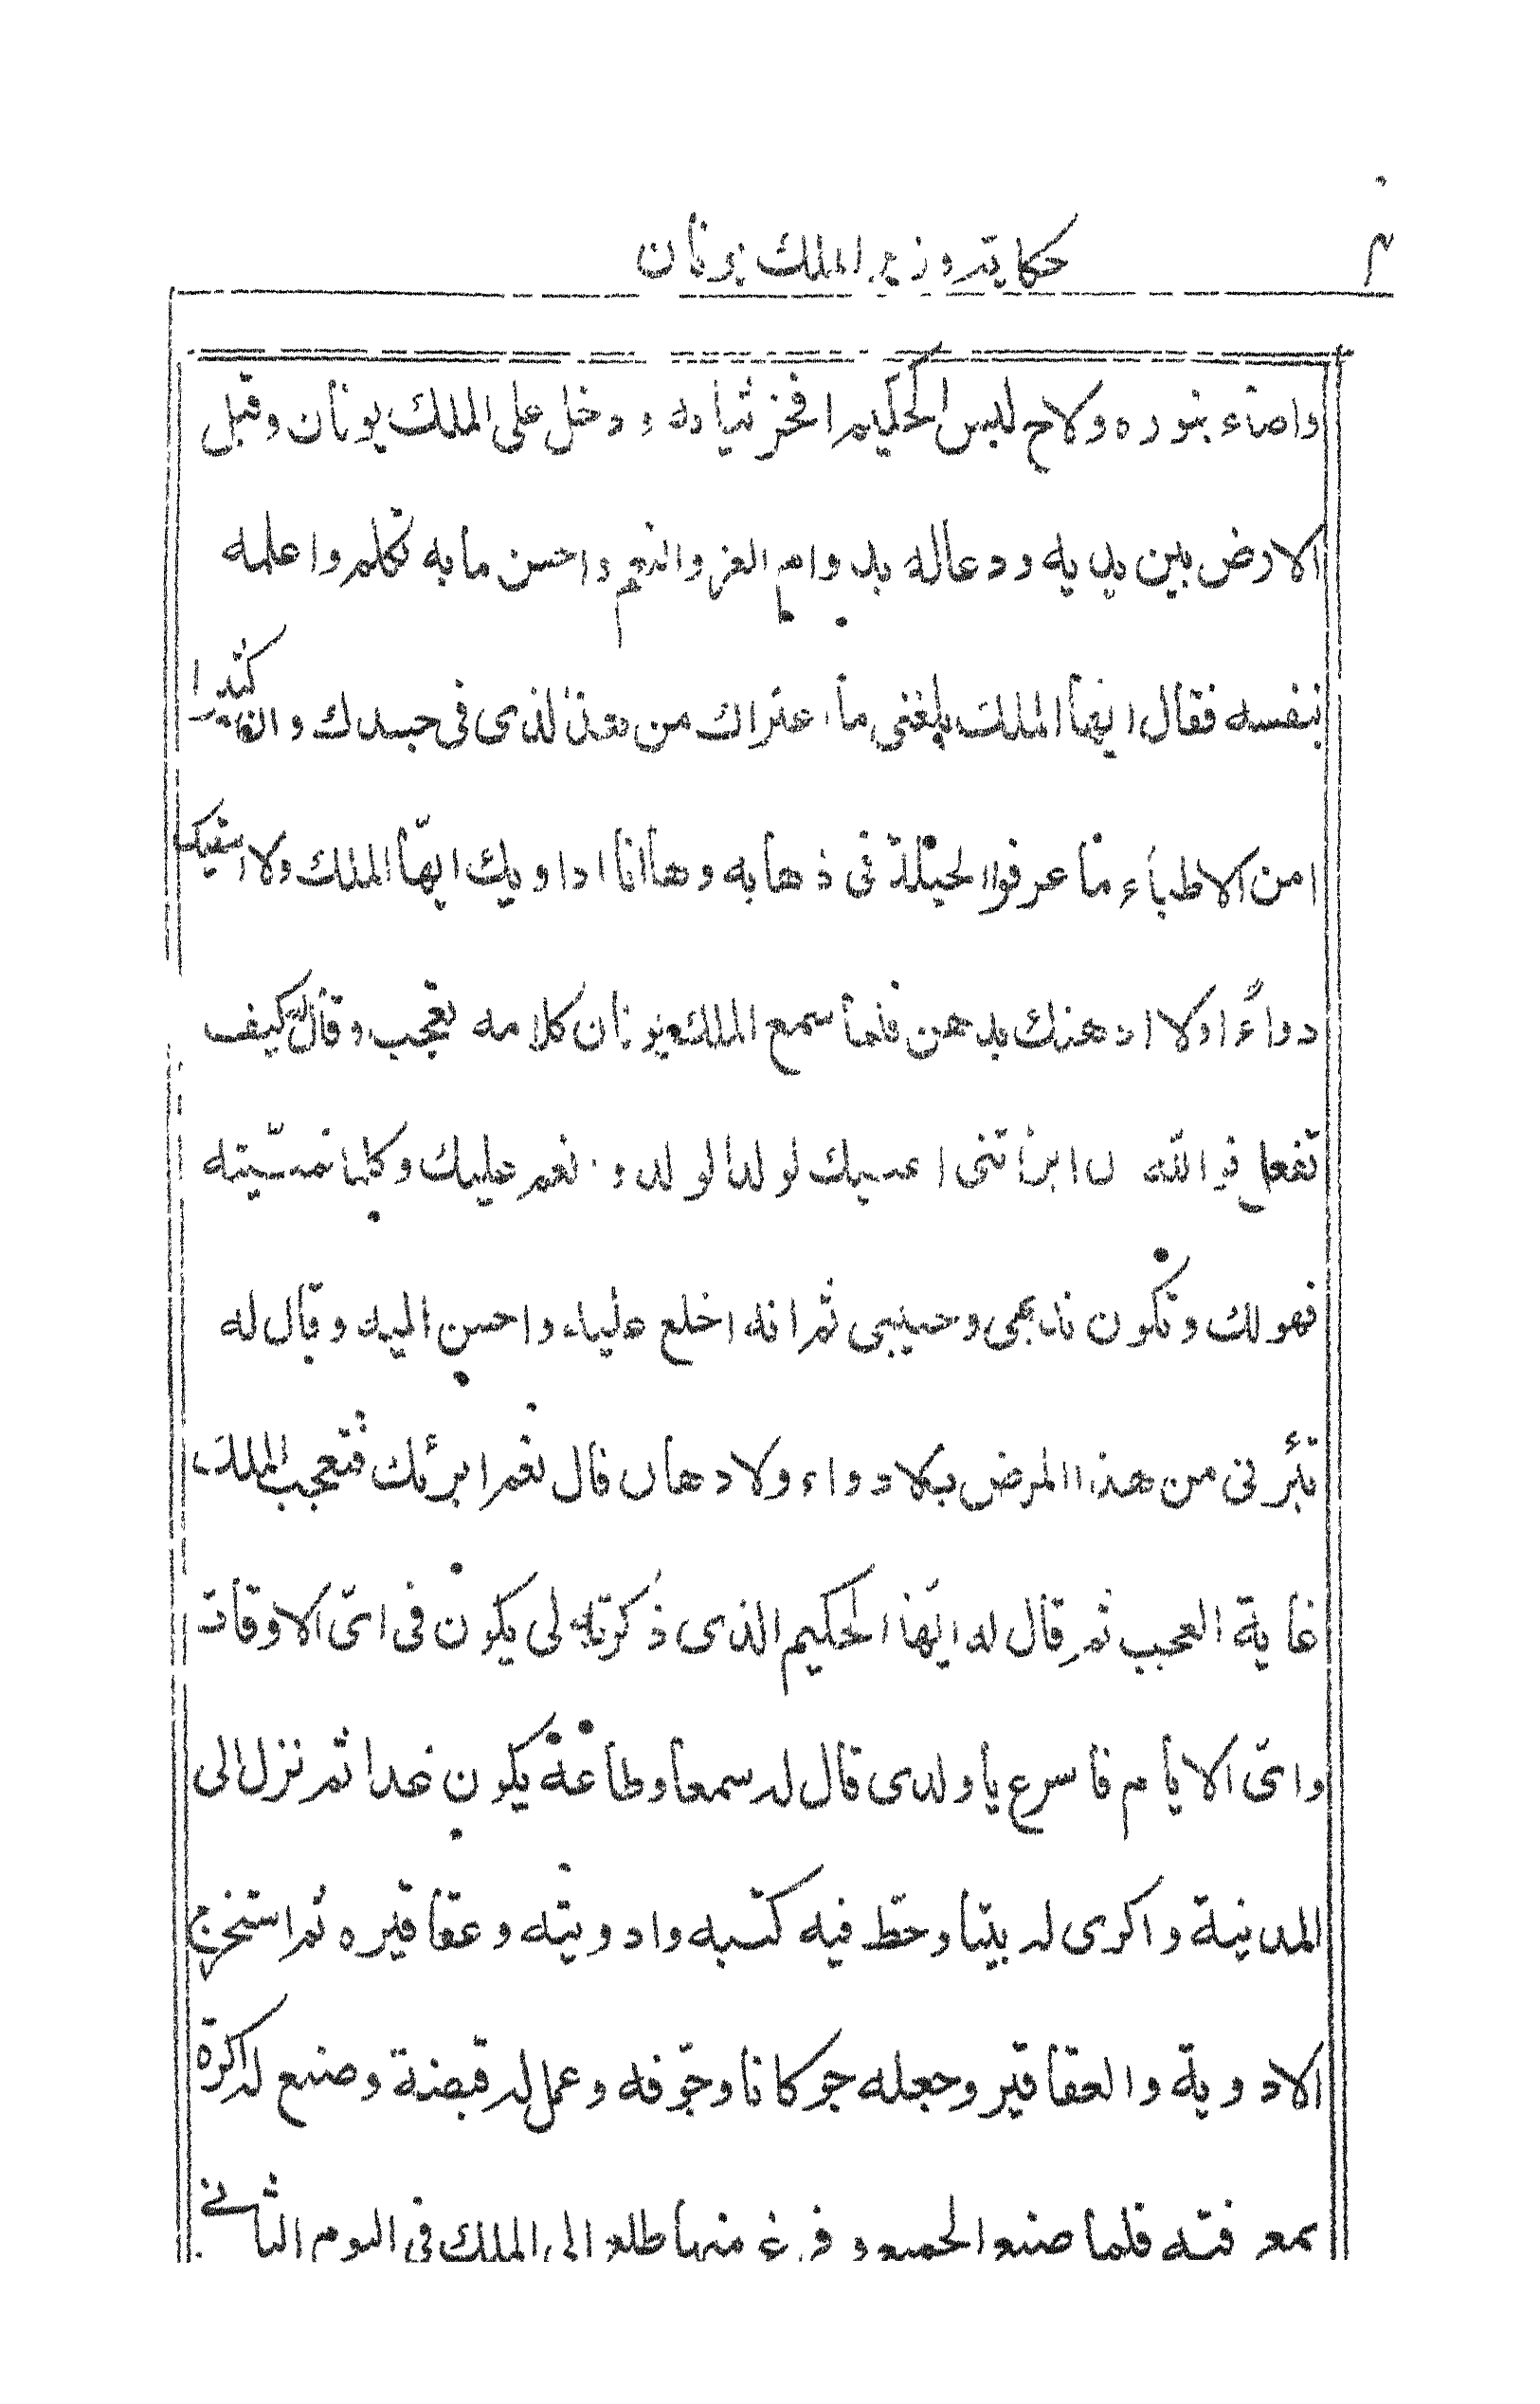 حكاية وزير الملك يونان
واضاء بنوره ولاح لبس الحكيم افخر ثيابه ودخل على الملك يونان وقبل
الارض بين يديه ودعا له بدوام العز والنعم واحسن ما به تكلم واعلمه
بنفسه فقال ايها الملك بلغنى ما اعتراك من هذا الذى فى جسدك وان كثيرا
من الاطباء ما عرفوا الحيلة فى ذهابه وها انا اداويك ايها الملك ولا اسقيك
دواءً ولا ادهنك بدهن فلما سمع الملك يونان كلامه تعجب وقال له كيف
تفعل فوالله ان ابرأتنى اغنيك لولد الولد وانعم عليك وكلما تمنيته
فهو لك وتكون نديمى وحبيبى ثم انه اخلع عليه واحسن اليه وقال له
تبرئنى من هذا المرض بلا دواء ولا دهان قال نعم ابرئك فتعجب الملك
غاية العجب ثم قال له ايها الحكيم الذى ذكرته لى يكون فى اى الاوقات
واى الايام فاسرع يا ولدى قال له سمعا وطاعة يكون غدا ثم نزل الى
المدينة واكرى له بيتا وحط فيه كتبه وادويته وعقاقيره ثم استخرج
الادوية والعقاقير وجعله جوكانا وجوّفه وعمل له قبضة وصنع له اكرة
بمعرفته فلما صنع الجميع وفرغ منها طلع الى الملك فى اليوم الثانى